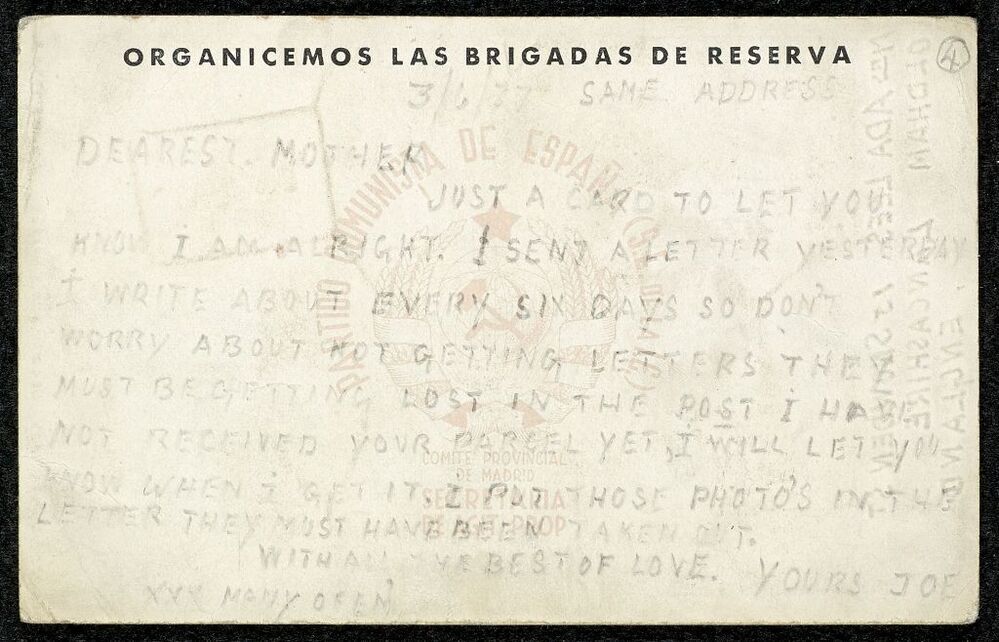 ORGANICEMOS LAS BRIGADAS DE RESERVA
4
3/6/37 SAME ADDRESS
DEAREST. MOTHER
JUST A CARD TO LET YOU
KNOW I AM ALRIGHT. I SENT A LETTER YESTERDAY
I WRITE ABOUT EVERY SIX DAYS SO DON'T
WORRY ABOUT NOT GETTING LETTERS THEY
MUST BE GETTING LOST IN THE POST I HAVE
NOT RECEIVED YOUR PARCEL YET, I WILL LET YOU
KNOW WHEN I GET IT. I PUT THOSE PHOTO'S IN THE
LETTER THEY MUST HAVE BEEN TAKEN OUT.
WITH ALL THE BEST OF LOVE. YOURS JOE
XXX MANY OF EM
PARTIDO COMUNISTA DE ESPAÑA
COMITE PROVINCIAL
DE MADRID
SECRETARIA
PROP
OLDHAM
LANCASHIRE
ENGLAND